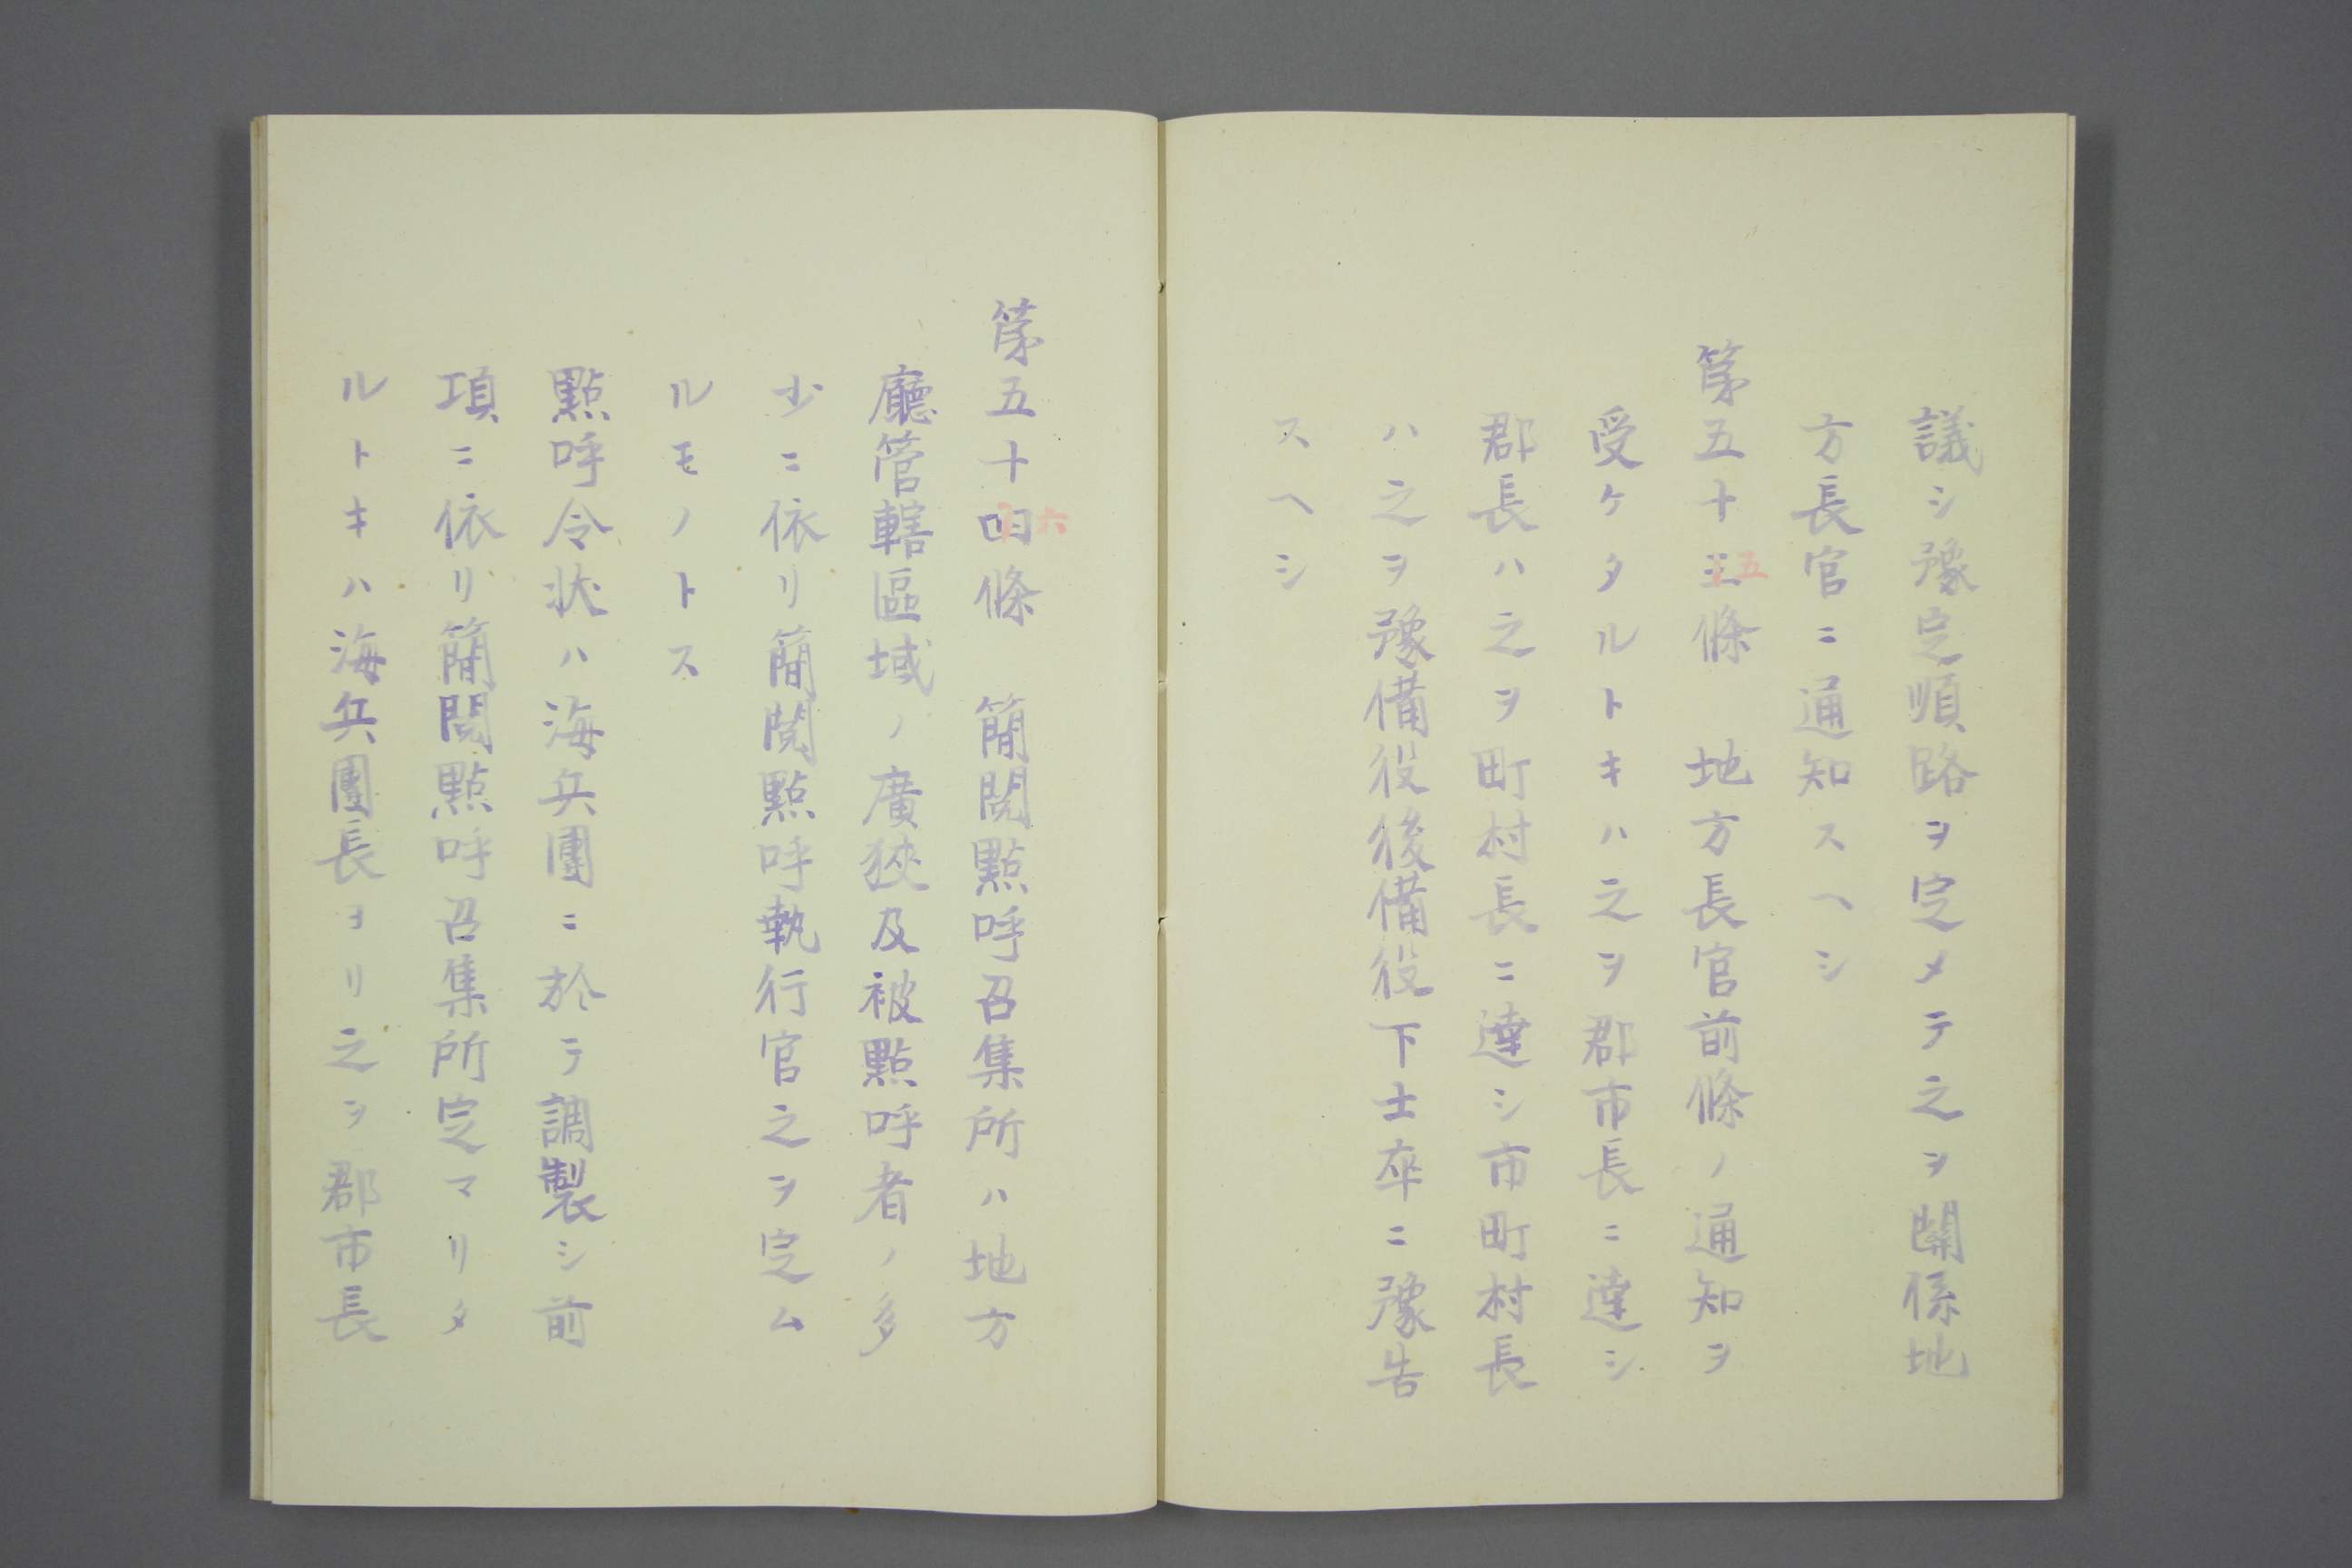 議シ豫定順路ヲ定メテ之ヲ關係地
方長官ニ通知スヘシ
第五十三五條　地方長官前條ノ通知ヲ
受ケタルトキハ之ヲ郡市長ニ達シ
郡長ハ之ヲ町村長ニ達シ市町村長
ハ之ヲ豫備役後備役下士卒ニ豫告
スヘシ
第五十四六條　簡閲點呼召集所ハ地方
廳管轄區域ノ廣狹及被點呼者ノ多
少ニ依リ簡閲點呼執行官之ヲ定ム
ルモノトス
點呼令状ハ海兵團ニ於テ調製シ前
項ニ依リ簡閲點呼召集所定マリタ
ルトキハ海兵團長ヨリ之ヲ郡市長